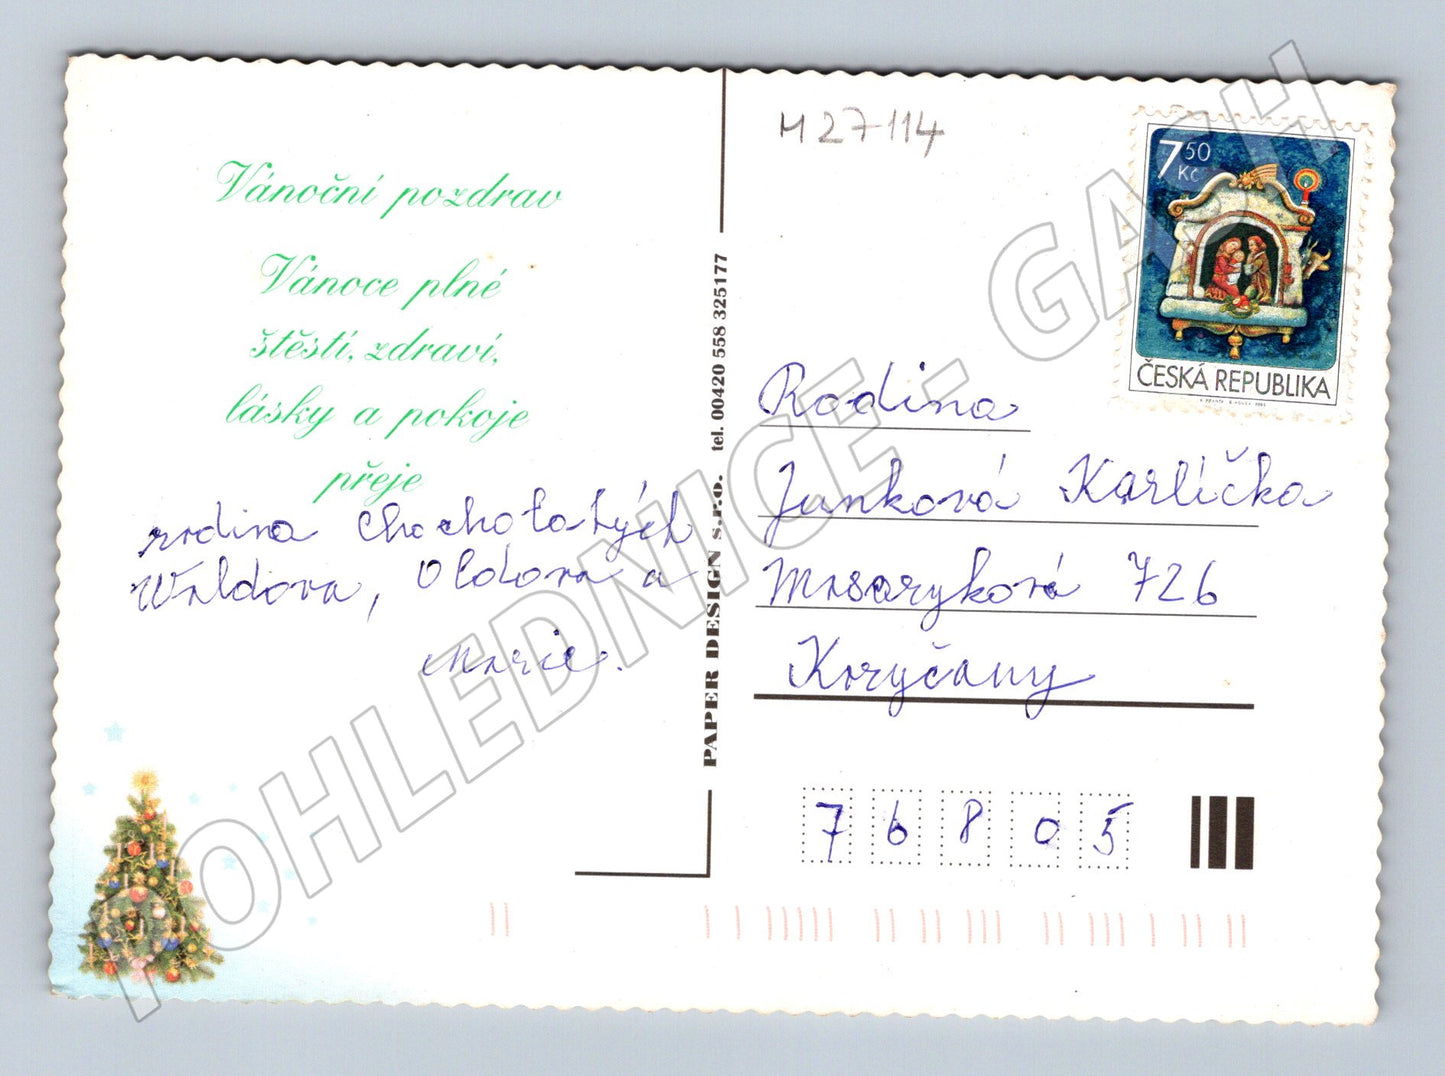 Vánoční pozdrav
Vánoce plné
štěstí, zdraví,
lásky a pokoje
přeje
rodina Chocholatých
Waldova, Oldova a
Marie.
PAPER DESIGN s.r.o. tel. 00420 558 325177
M 27-114
7 50
Kč
ČESKÁ REPUBLIKA
Rodina
Junková Karlíčka
Masaryková 726
Koryčany
7 6 8 0 5
POHLEDNICE - GASH